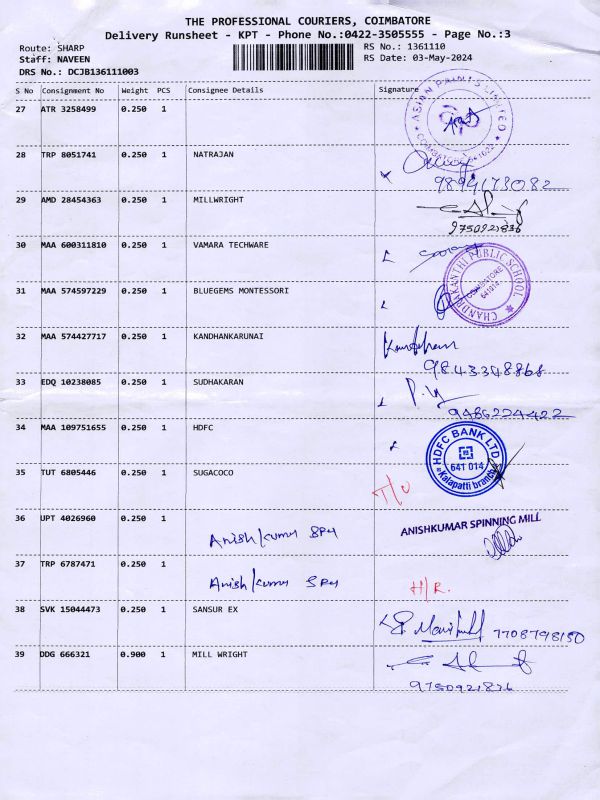 THE PROFESSIONAL COURIERS, COIMBATORE
Delivery Runsheet - KPT - Phone No.:0422-3505555 - Page No.:3
Route: SHARP
Staff: NAVEEN
DRS No.: DCJB136111003
RS No.: 1361110
RS Date: 03-May-2024
S No Consignment No Weight PCS Consignee Details Signature
27 ATR 3258499 0.250 1
ASIAN PAINTS LIMITED
28 TRP 8051741 0.250 1 NATRAJAN
9894173082
29 AMD 28454363 0.250 1 MILLWRIGHT
9750921836
30 MAA 600311810 0.250 1 VAMARA TECHWARE
31 MAA 574597229 0.250 1 BLUEGEMS MONTESSORI
CHANDRAKANTHI PUBLIC SCHOOL
COIMBATORE
641014
32 MAA 574427717 0.250 1 KANDHANKARUNAI
9843348868
33 EDQ 10238085 0.250 1 SUDHAKARAN
9486224422
34 MAA 109751655 0.250 1 HDFC
HDFC BANK LTD
641 014
Kalapatti branch
35 TUT 6805446 0.250 1 SUGACOCO
36 UPT 4026960 0.250 1 Anishkumar SPM ANISHKUMAR SPINNING MILL
37 TRP 6787471 0.250 1 Anishkumar SPM H/R.
38 SVK 15044473 0.250 1 SANSUR EX
7708798150
39 DDG 666321 0.900 1 MILL WRIGHT
9750921836